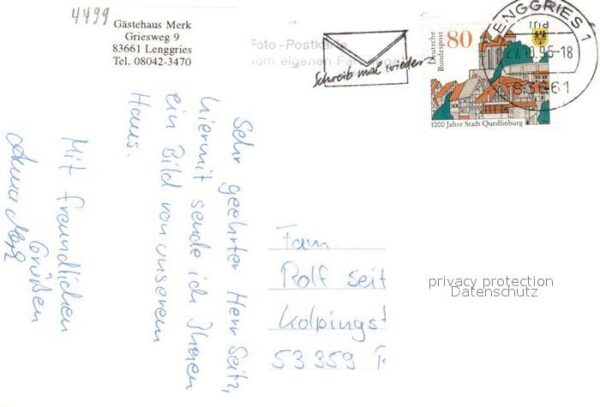 4499
Gästehaus Merk
Griesweg 9
83661 Lenggries
Tel. 08042-3470
Foto-Postkarte
vom eigenen
Schreib mal wieder
Deutsche
Bundespost
80
1000 Jahre Stadt Quedlinburg
LENGGRIES 1
-18
83661
Sehr geehrter Herr Seitz,
hiermit sende ich Ihnen
ein Bild von unserem
Haus.
Mit freundlichen
Grüßen
Fam.
Rolf Seit
Kolpingst
53359
privacy protection
Datenschutz